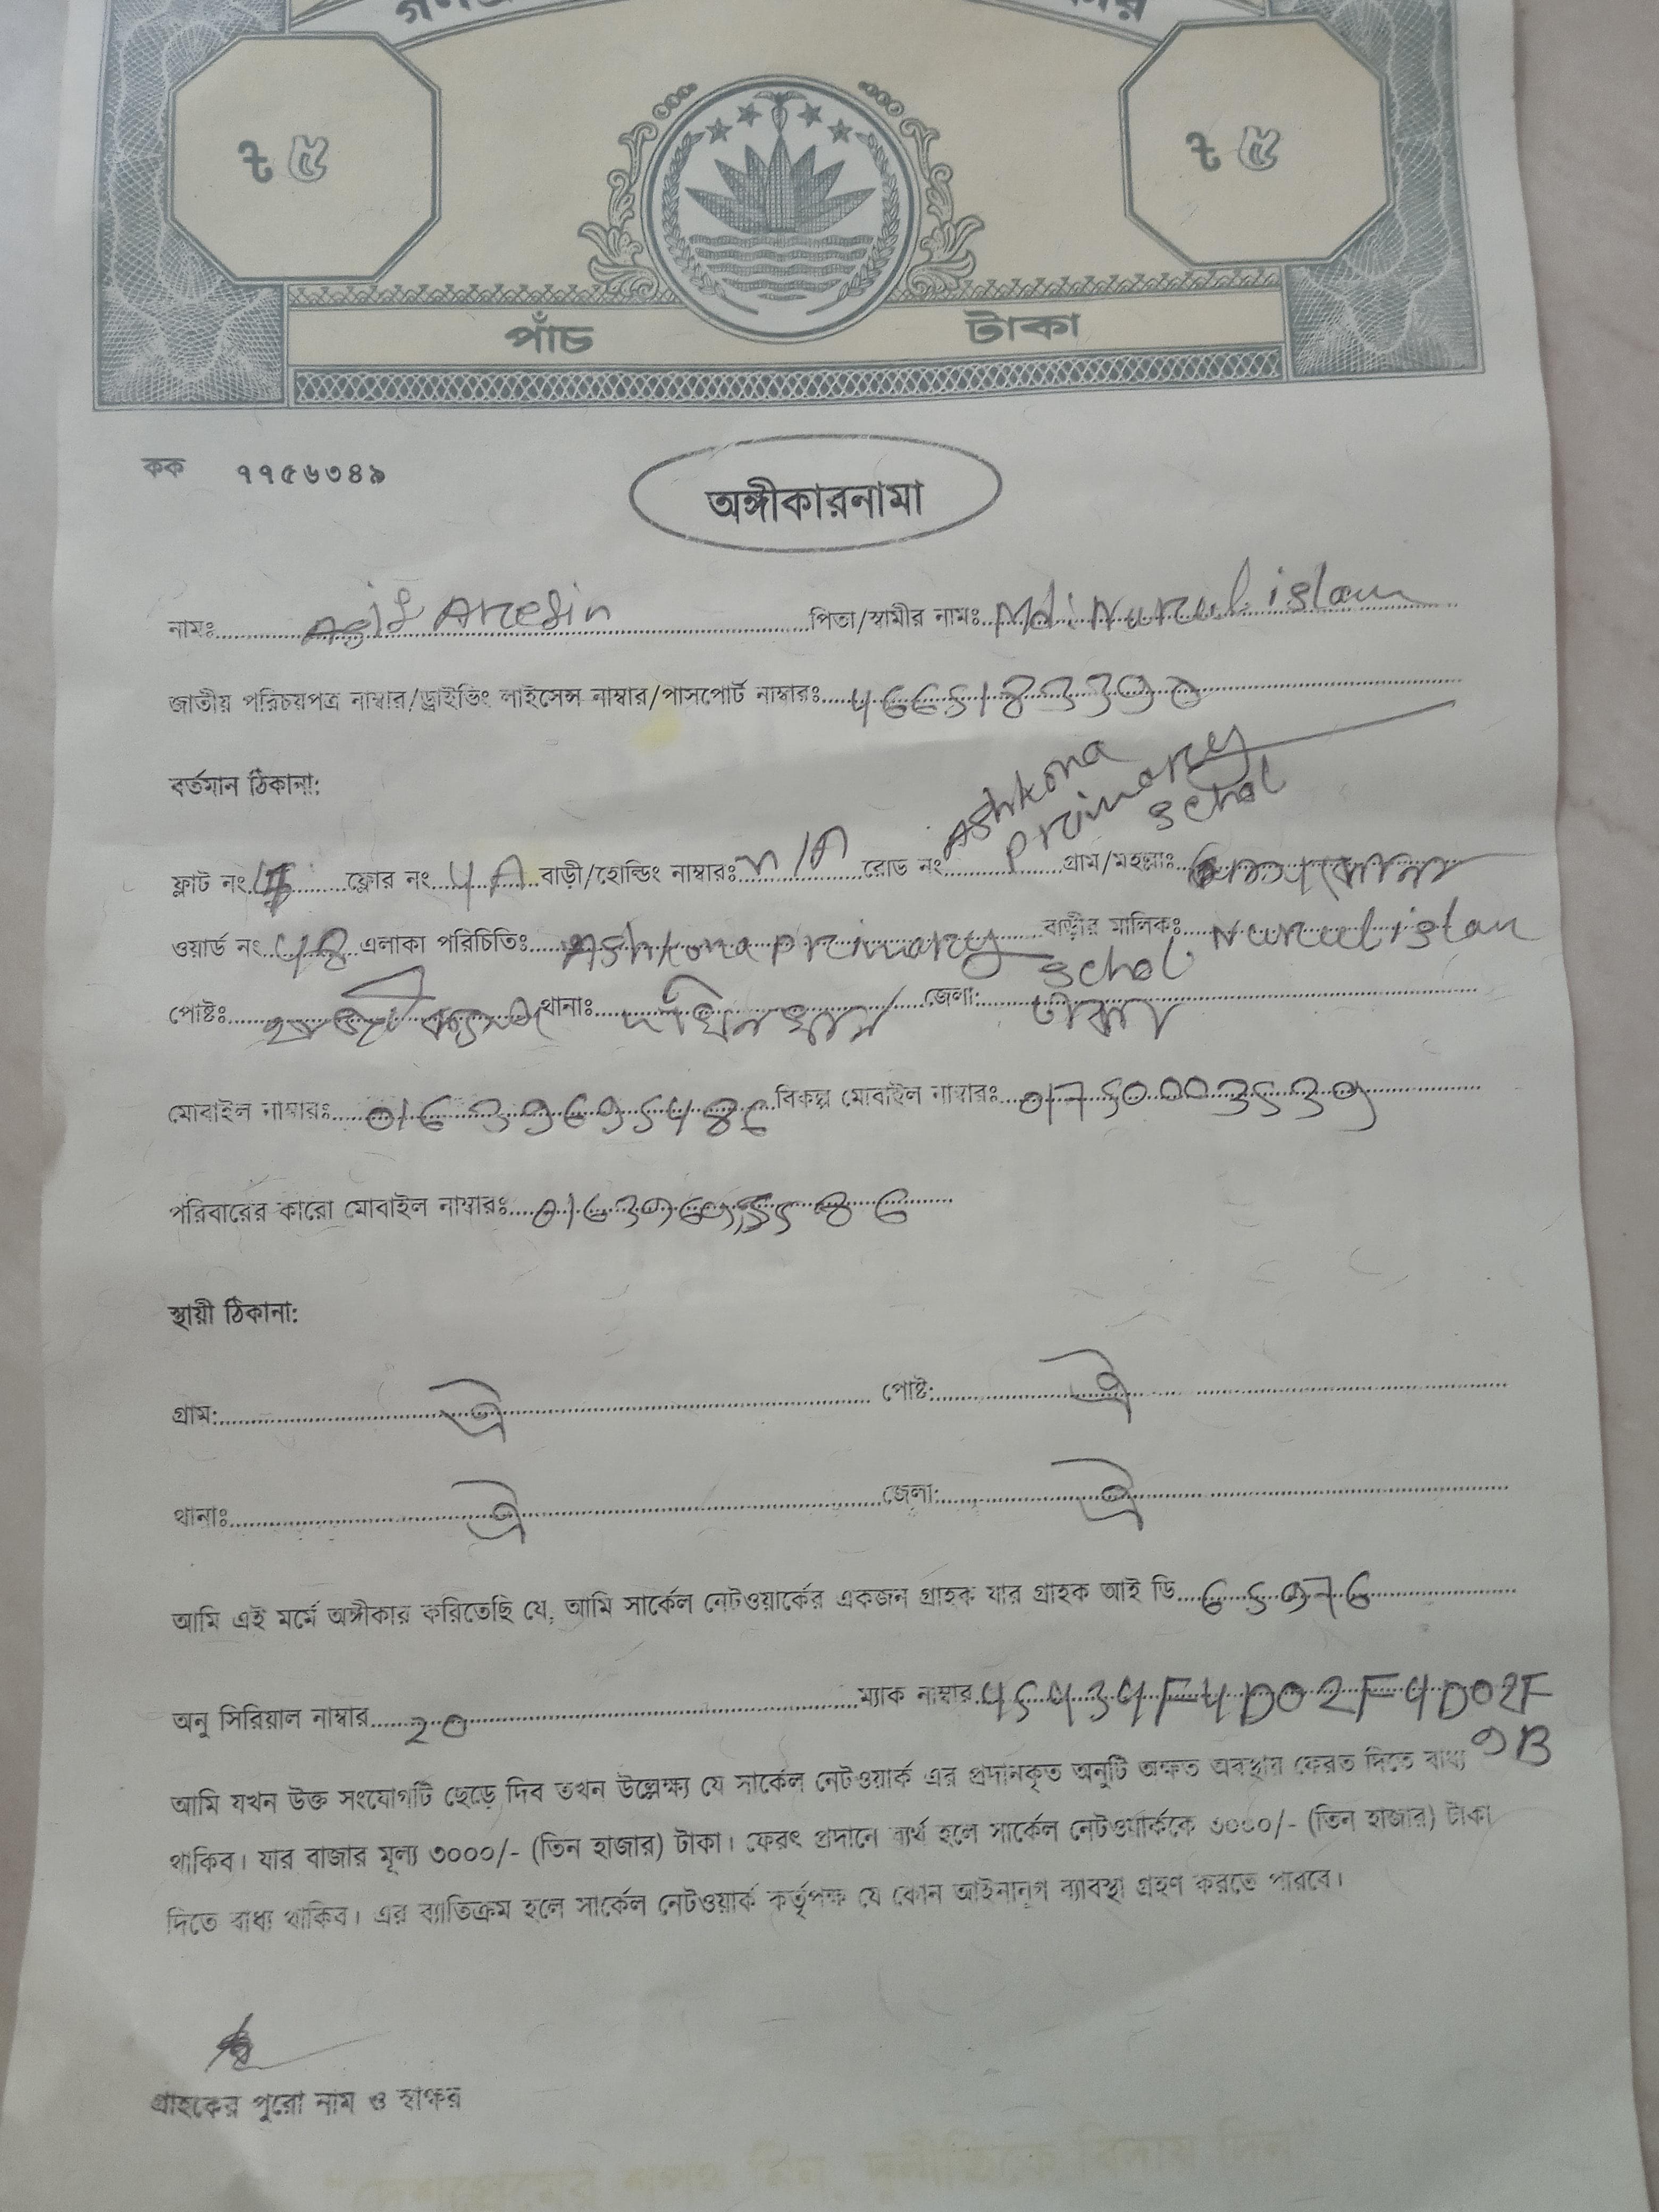 ৳ ৫ ৳ ৫
পাঁচ টাকা
কক ৭৭৫৬৩৪৯
অঙ্গীকারনামা
নামঃ Asif Arefin পিতা/স্বামীর নামঃ Md. Nurul islam
জাতীয় পরিচয়পত্র নাম্বার/ড্রাইভিং লাইসেন্স নাম্বার/পাসপোর্ট নাম্বারঃ
বর্তমান ঠিকানা:
Ashkona Primary Schol
ফ্লাট নং ফ্লোর নং 4A বাড়ী/হোল্ডিং নাম্বারঃ n/A রোড নং গ্রাম/মহল্লাঃ
ওয়ার্ড নং এলাকা পরিচিতিঃ Ashkona Primary Schol বাড়ীর মালিকঃ Nurul islam
পোষ্টঃ থানাঃ দখিনখান জেলা: ঢাকা
মোবাইল নাম্বারঃ বিকল্প মোবাইল নাম্বারঃ
পরিবারের কারো মোবাইল নাম্বারঃ
স্থায়ী ঠিকানা:
গ্রাম: ঐ পোষ্ট: ঐ
থানাঃ ঐ জেলা: ঐ
আমি এই মর্মে অঙ্গীকার করিতেছি যে, আমি সার্কেল নেটওয়ার্কের একজন গ্রাহক যার গ্রাহক আই ডি 65976
অনু সিরিয়াল নাম্বার 20 ম্যাক নাম্বার 45434F4D02F4D02F
9B
আমি যখন উক্ত সংযোগটি ছেড়ে দিব তখন উল্লেক্ষ্য যে সার্কেল নেটওয়ার্ক এর প্রদানকৃত অনুটি অক্ষত অবস্থায় ফেরত দিতে বাধ্য
থাকিব। যার বাজার মূল্য ৩০০০/- (তিন হাজার) টাকা। ফেরৎ প্রদানে ব্যর্থ হলে সার্কেল নেটওয়ার্ককে ৩০০০/- (তিন হাজার) টাকা
দিতে বাধ্য থাকিব। এর ব্যাতিক্রম হলে সার্কেল নেটওয়ার্ক কর্তৃপক্ষ যে কোন আইনানুগ ব্যাবস্থা গ্রহণ করতে পারবে।
গ্রাহকের পুরো নাম ও স্বাক্ষর